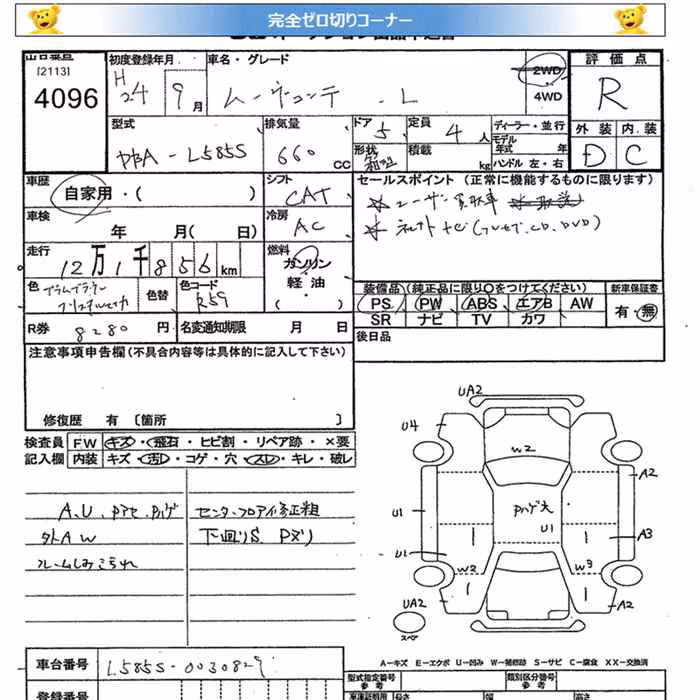 完全ゼロ切りコーナー
[2113]
4096
初度登録年月
H
24
9月
車名・グレード
ムーヴコンテ . L
2WD
4WD
評価点
R
外装 内装
D C
型式
DBA - L585S
排気量
660 cc
ドア
5
定員
4人
形状
積載
kg
ディーラー・並行
モデル
年式 年
ハンドル 左・右
車歴
自家用・( )
シフト
CAT
車検
年 月( 日)
冷房
AC
走行
12万1千856km
燃料
ガソリン
・
軽油
・
( )
色
色替
色コード
R59
R券 8280 円
名変通知期限 月 日
セールスポイント (正常に機能するものに限ります)
ユーザー買取車
装備品 (純正品に限り○をつけてください)
PS PW ABS エアB AW
SR ナビ TV カワ
新車保証書
有・無
後日品
注意事項申告欄(不具合内容等は具体的に記入して下さい)
修復歴 有 〔箇所 〕
検査員 FW キズ・飛石・ヒビ割・リペア跡・×要
記入欄 内装 キズ・汚レ・コゲ・穴・スレ・キレ・破レ
A,U,
外AW
センターフロアイ修正粗
下回りS
UA2
U4
W2
A2
U1
ハゲ大
U1
A3
U1
W2
W3
A2
UA2
スペア
A―キズ E―エクボ U―凹み W―補修跡 S―サビ C―腐食 XX―交換済
車台番号 L585S-0030829
登録番号
型式指定番号
参考
類別区分番号
参考